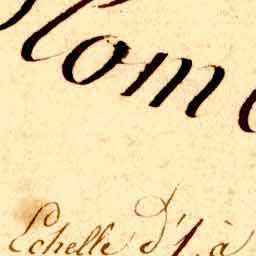 lom
Echelle d'1 à